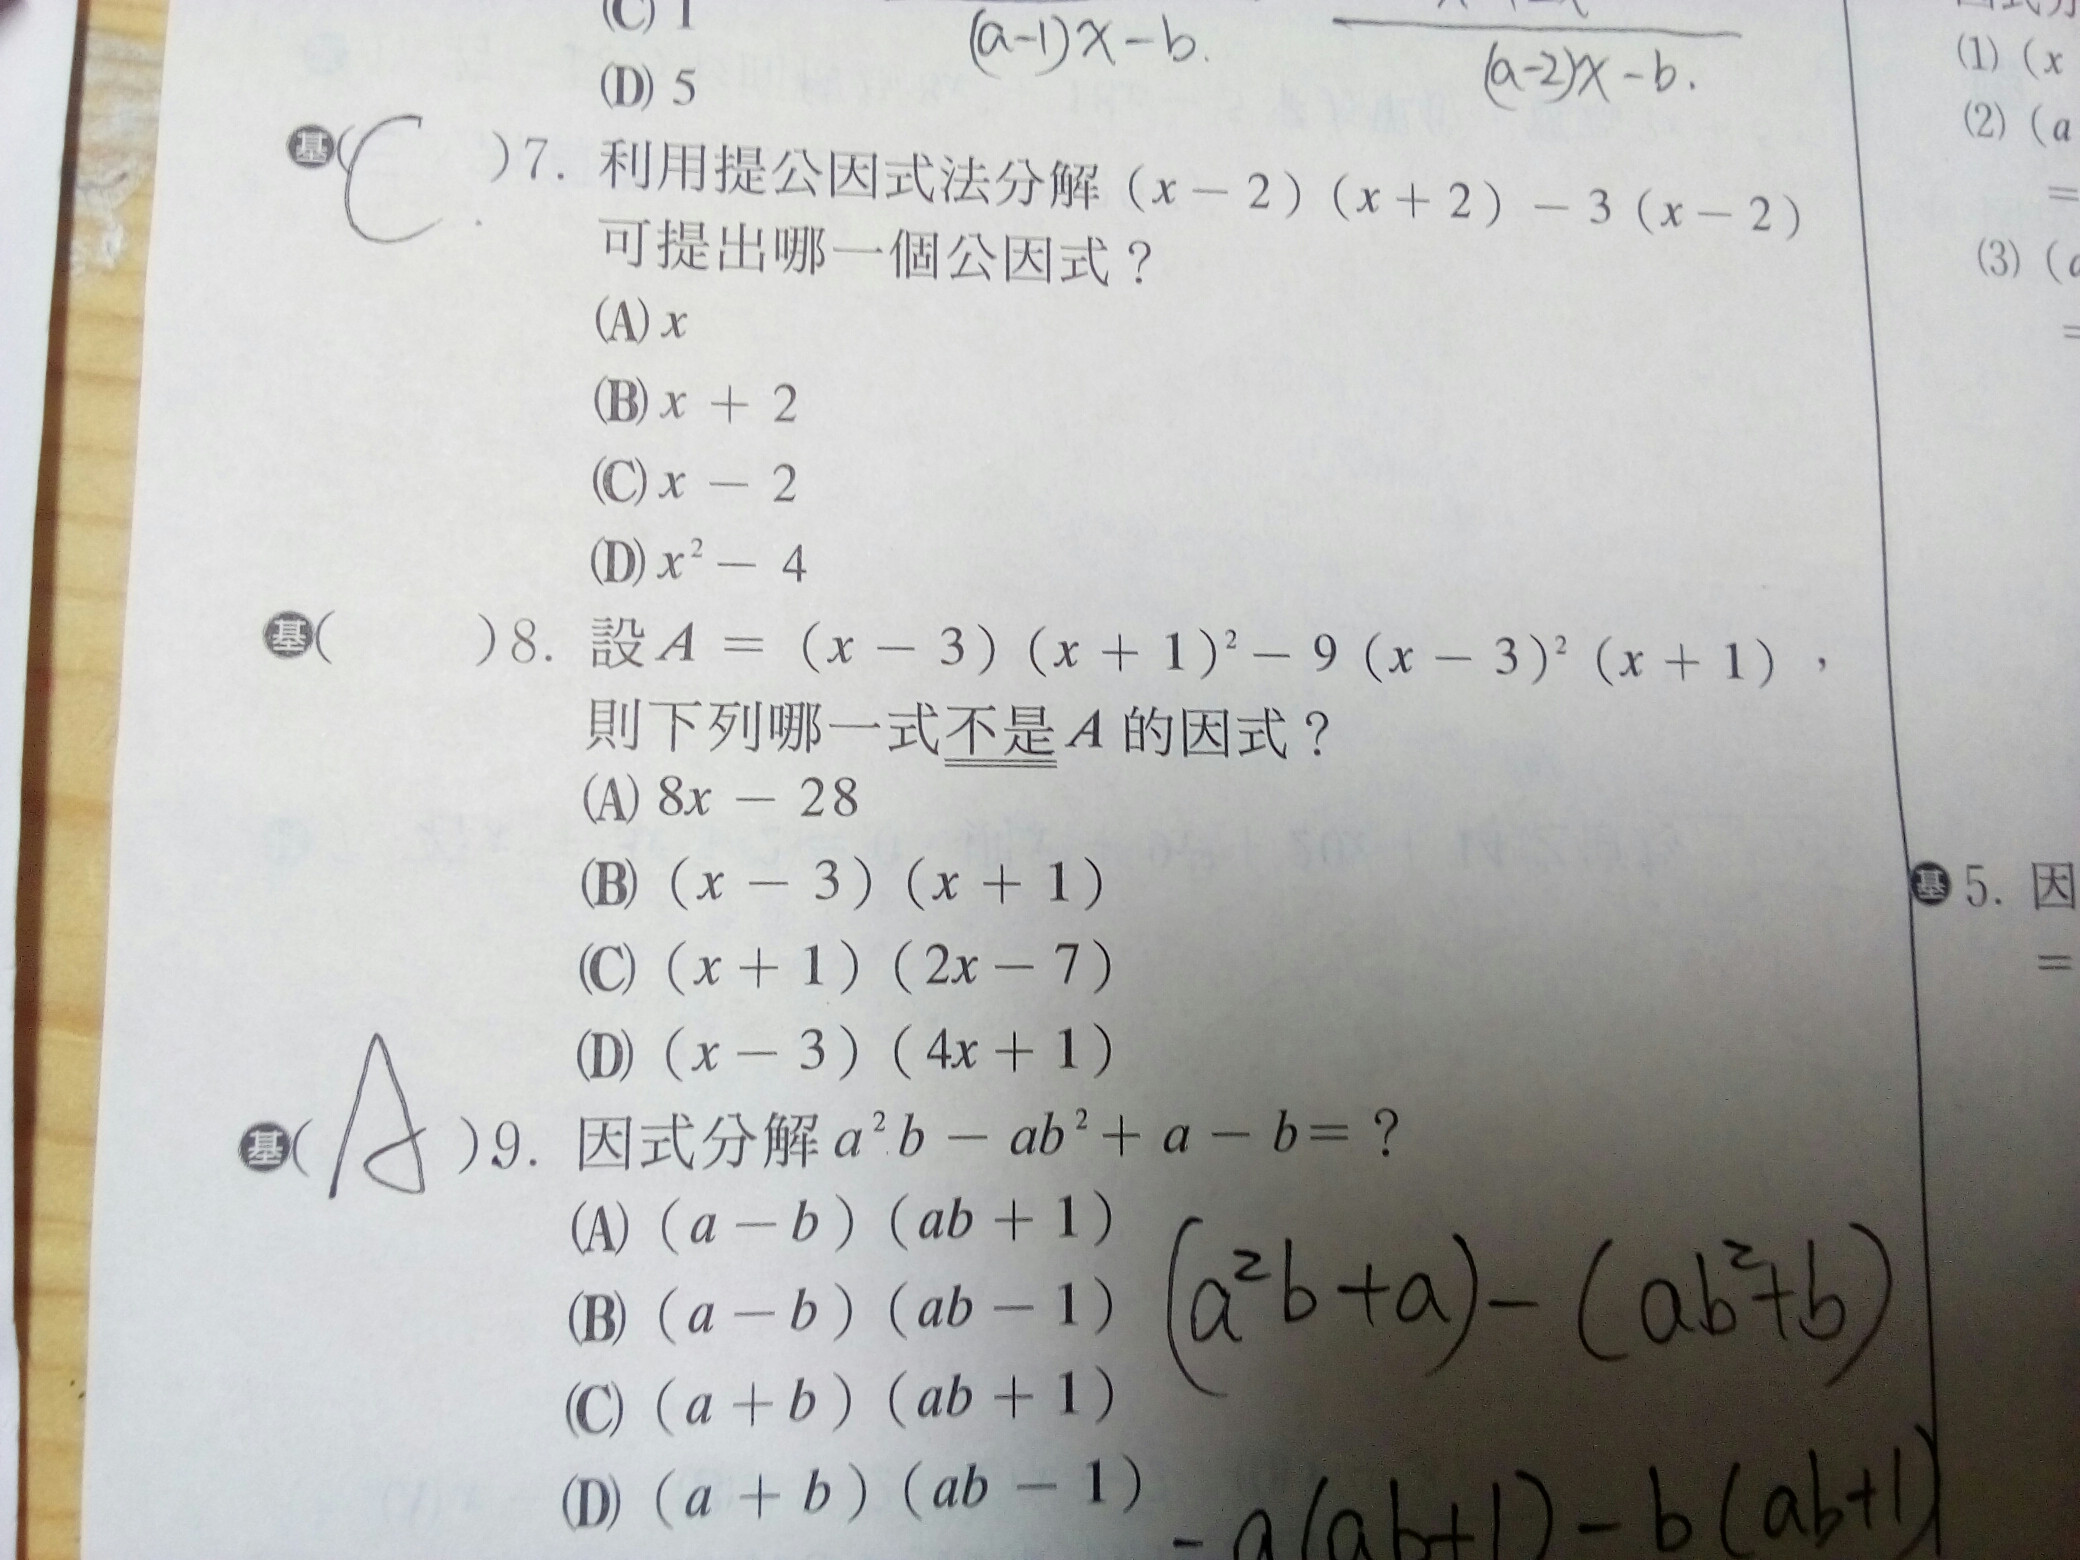 (C) 1
(D) 5
(a-1)x-b.
(a-2)x-b.
基( C )7. 利用提公因式法分解(x-2)(x+2)-3(x-2)
可提出哪一個公因式？
(A) x
(B) x + 2
(C) x - 2
(D) x² - 4
基( )8. 設 A = (x-3)(x+1)²-9(x-3)²(x+1)，
則下列哪一式不是 A 的因式？
(A) 8x - 28
(B) (x-3)(x+1)
(C) (x+1)(2x-7)
(D) (x-3)(4x+1)
基( A )9. 因式分解 a²b - ab² + a - b = ？
(A) (a-b)(ab+1)
(B) (a-b)(ab-1)
(C) (a+b)(ab+1)
(D) (a+b)(ab-1)
(a²b+a)-(ab²+b)
- a(ab+1)-b(ab+1)
(1) (x
(2) (a
=
(3) (a
=
基5. 因
=